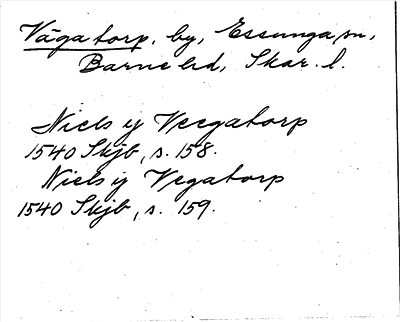 Vägatorp, by, Essunga sn,
Barne hd, Skar. l.
Niels ij Veegatorp
1540 Skjb, s. 158.
Niels ij Vegatorp
1540 Skjb, s. 159.